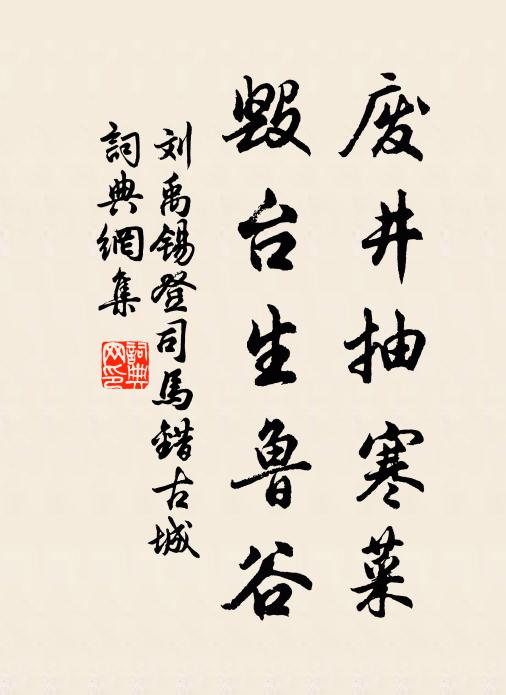 废井抽寒菜
毁台生鲁谷
刘禹锡登司馬錯古城
詞典網集
詞典
网印